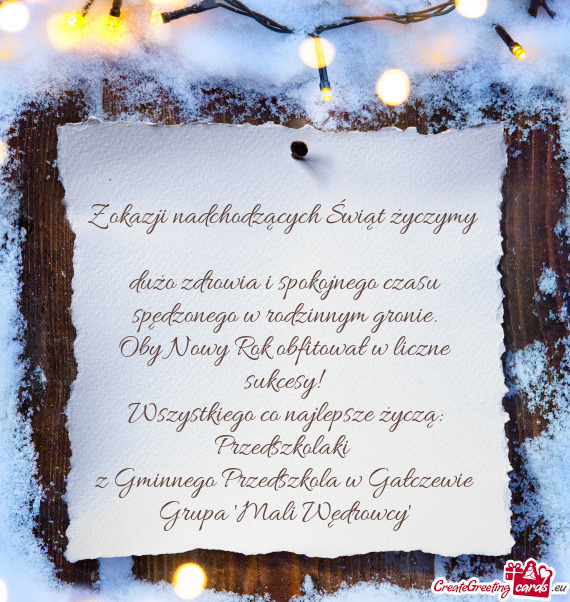 Z okazji nadchodzących Świąt życzymy
dużo zdrowia i spokojnego czasu
spędzonego w rodzinnym gronie.
Oby Nowy Rok obfitował w liczne
sukcesy!
Wszystkiego co najlepsze życzą:
Przedszkolaki
z Gminnego Przedszkola w Gałczewie
Grupa 'Mali Wędrowcy'
CreateGreeting cards .eu